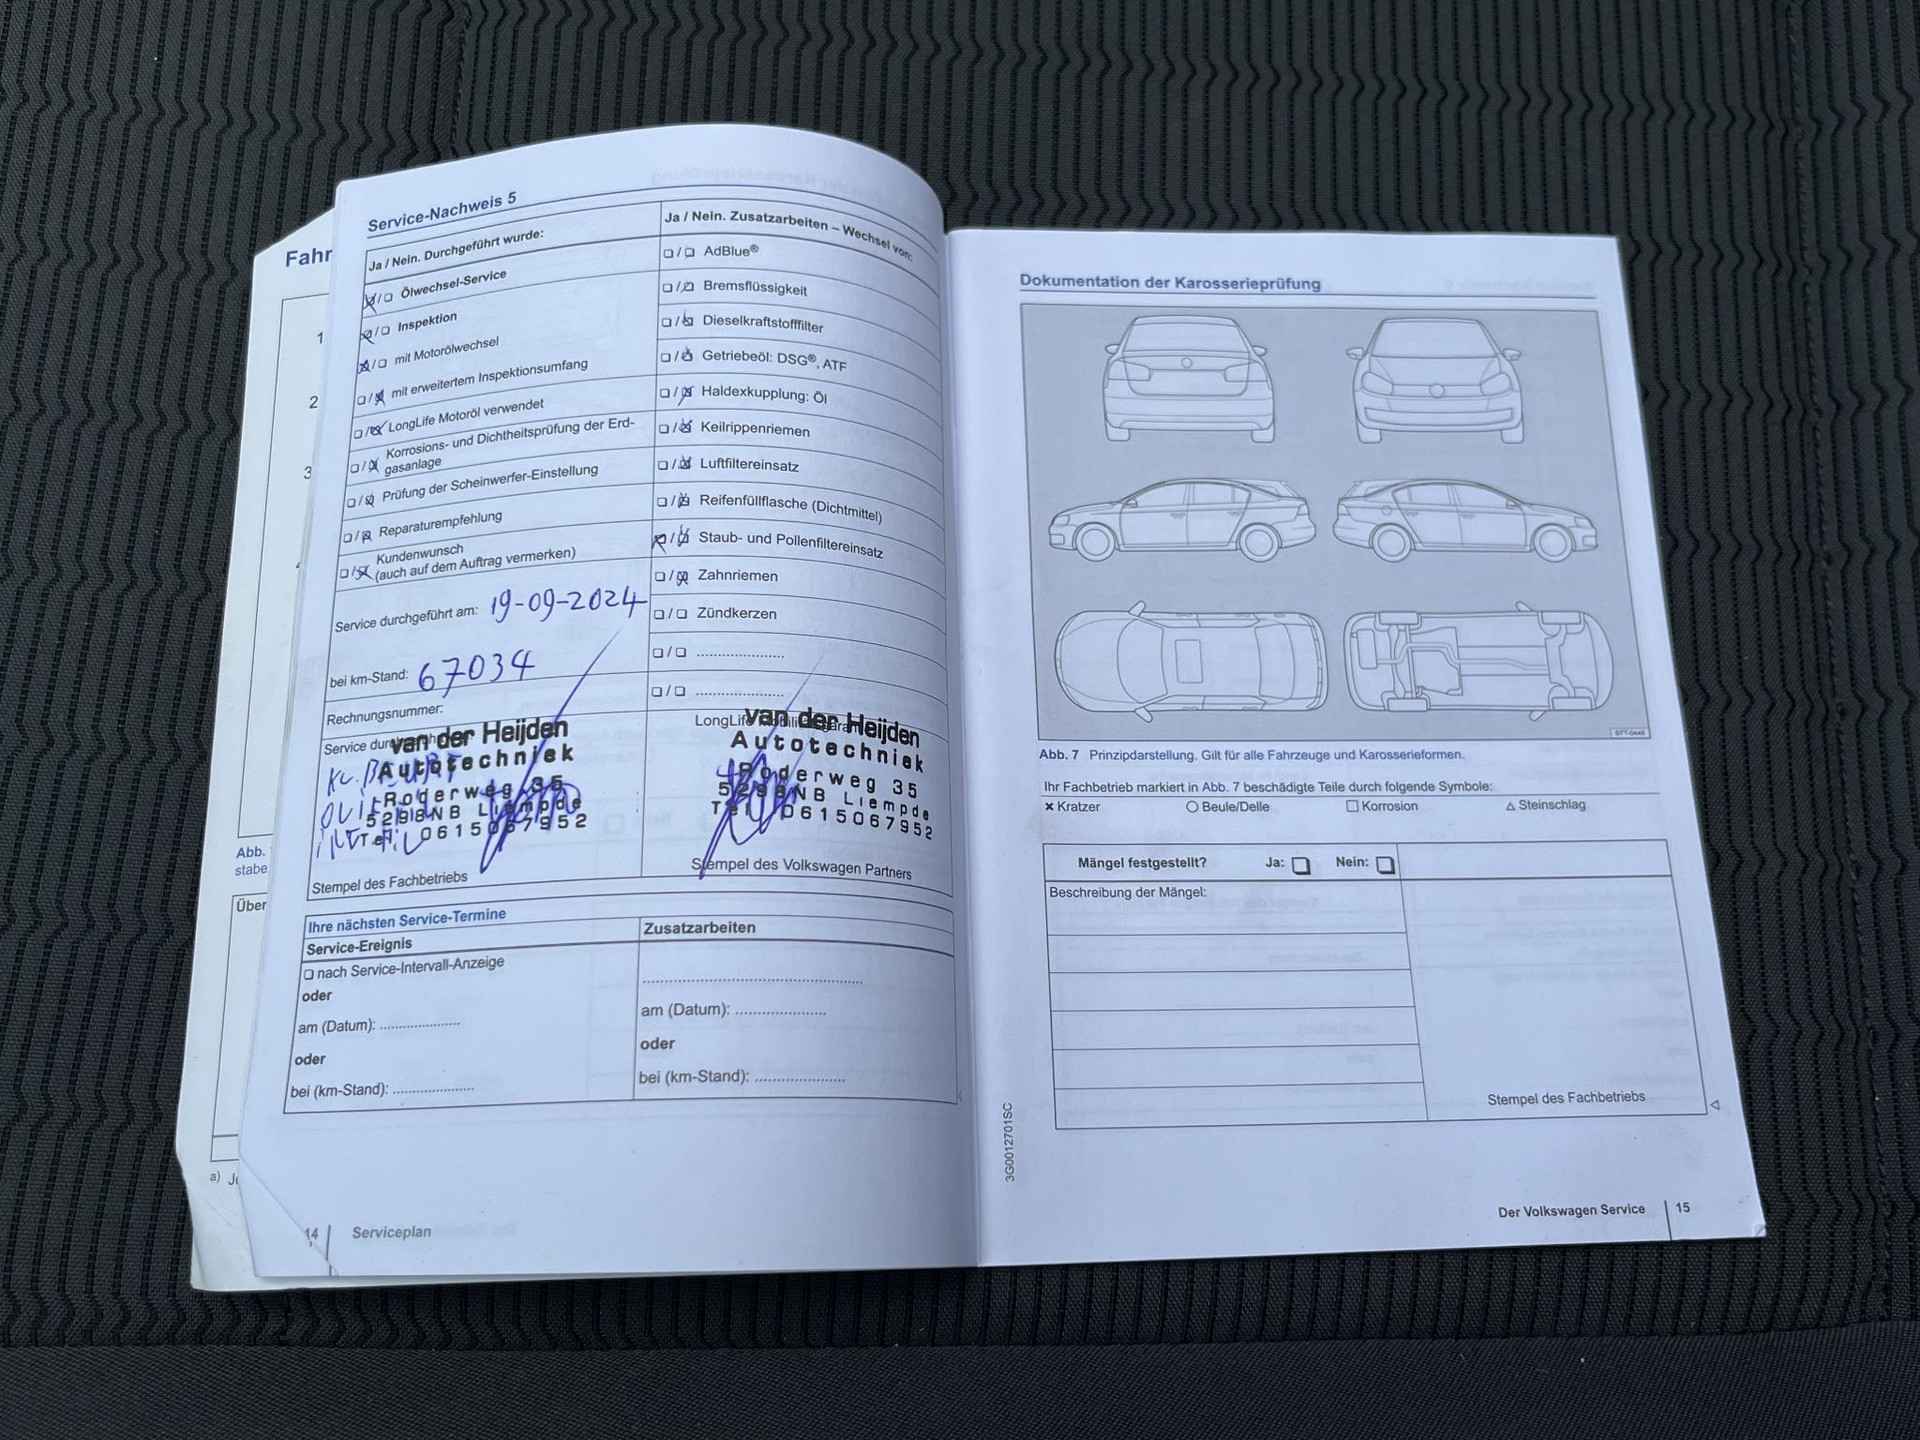 Fahr
1
2
3
Abb.
stabe
Über
a) J
Service-Nachweis 5
Ja / Nein. Durchgeführt wurde:
❑/❑ Ölwechsel-Service
❑/❑ Inspektion
❑/❑ mit Motorölwechsel
❑/❑ mit erweitertem Inspektionsumfang
❑/❑ LongLife Motoröl verwendet
❑/❑ Korrosions- und Dichtheitsprüfung der Erd-
gasanlage
❑/❑ Prüfung der Scheinwerfer-Einstellung
❑/❑ Reparaturempfehlung
❑/❑ Kundenwunsch
(auch auf dem Auftrag vermerken)
Service durchgeführt am: 19-09-2024
bei km-Stand: 67034
Rechnungsnummer:
Service
van der Heijden
Autotechniek
Roderweg 35
5298NB Liempde
Tel. 0615067952
Stempel des Fachbetriebs
Ja / Nein. Zusatzarbeiten – Wechsel von:
❑/❑ AdBlue®
❑/❑ Bremsflüssigkeit
❑/❑ Dieselkraftstofffilter
❑/❑ Getriebeöl: DSG®, ATF
❑/❑ Haldexkupplung: Öl
❑/❑ Keilrippenriemen
❑/❑ Luftfiltereinsatz
❑/❑ Reifenfüllflasche (Dichtmittel)
❑/❑ Staub- und Pollenfiltereinsatz
❑/❑ Zahnriemen
❑/❑ Zündkerzen
❑/❑ .....................
❑/❑ .....................
LongLife
van der Heijden
Autotechniek
Roderweg 35
5298NB Liempde
Tel. 0615067952
Stempel des Volkswagen Partners
Ihre nächsten Service-Termine
Service-Ereignis
❑ nach Service-Intervall-Anzeige
oder
am (Datum): ...................
oder
bei (km-Stand): ...................
Zusatzarbeiten
.....................................................
am (Datum): .....................
oder
bei (km-Stand): .....................
14 Serviceplan
Dokumentation der Karosserieprüfung
Abb. 7 Prinzipdarstellung. Gilt für alle Fahrzeuge und Karosserieformen.
Ihr Fachbetrieb markiert in Abb. 7 beschädigte Teile durch folgende Symbole:
× Kratzer ○ Beule/Delle □ Korrosion △ Steinschlag
Mängel festgestellt? Ja: ❑ Nein: ❑
Beschreibung der Mängel:
Stempel des Fachbetriebs
3G0012701SC
Der Volkswagen Service 15